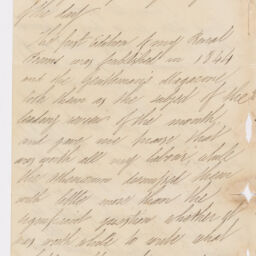 of the day
The first Edition of my Rural
Poems was published in 1844
and the Gentleman's Magazine,
took them as the subject of the
leading review of the month,
and gave me praise that
was worth all my labour, while
the Athenaeum dismissed them
with little more than the
significant question whether it
was worth while to write what